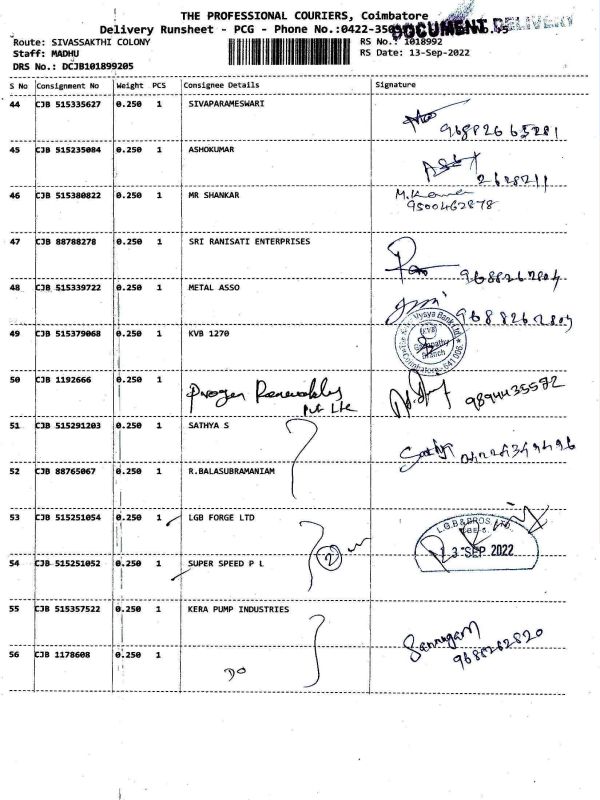 THE PROFESSIONAL COURIERS, Coimbatore
Delivery Runsheet - PCG - Phone No.:0422-350
DOCUMENT DELIVERY
Route: SIVASSAKTHI COLONY RS No.: 1018992
Staff: MADHU RS Date: 13-Sep-2022
DRS No.: DCJB101899205
S No Consignment No Weight PCS Consignee Details Signature
44 CJB 515335627 0.250 1 SIVAPARAMESWARI
96882665281
45 CJB 515235084 0.250 1 ASHOKUMAR
2628211
46 CJB 515380822 0.250 1 MR SHANKAR M.Kumar
9500462878
47 CJB 88788278 0.250 1 SRI RANISATI ENTERPRISES
9688262804
48 CJB 515339722 0.250 1 METAL ASSO
9688262804
49 CJB 515379068 0.250 1 KVB 1270
Vysya Bank Ltd
KVB
Ganapathy
Branch
Coimbatore - 641 006
50 CJB 1192666 0.250 1 Renewables
Pvt Lte
9894435592
51 CJB 515291203 0.250 1 SATHYA S Sathya
52 CJB 88765067 0.250 1 R.BALASUBRAMANIAM
53 CJB 515251054 0.250 1 LGB FORGE LTD
L.G.B.&BROS. LTD
13 SEP 2022
2
54 CJB 515251052 0.250 1 SUPER SPEED P L
55 CJB 515357522 0.250 1 KERA PUMP INDUSTRIES
9688262820
56 CJB 1178608 0.250 1 DO